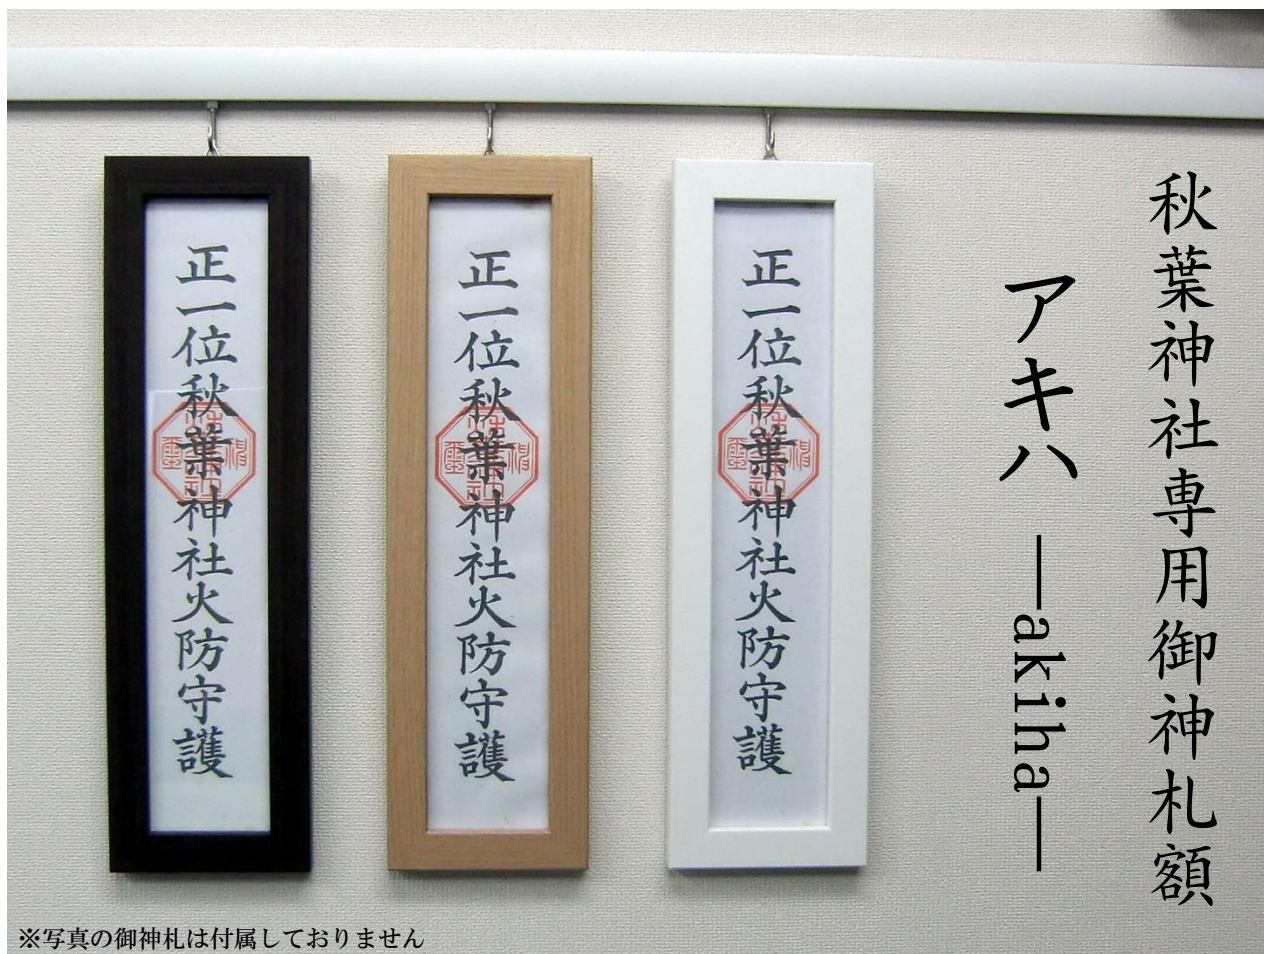 秋葉神社専用御神札額
アキハ ―akiha―
正一位秋葉神社火防守護
正一位秋葉神社火防守護
正一位秋葉神社火防守護
※写真の御神札は付属しておりません